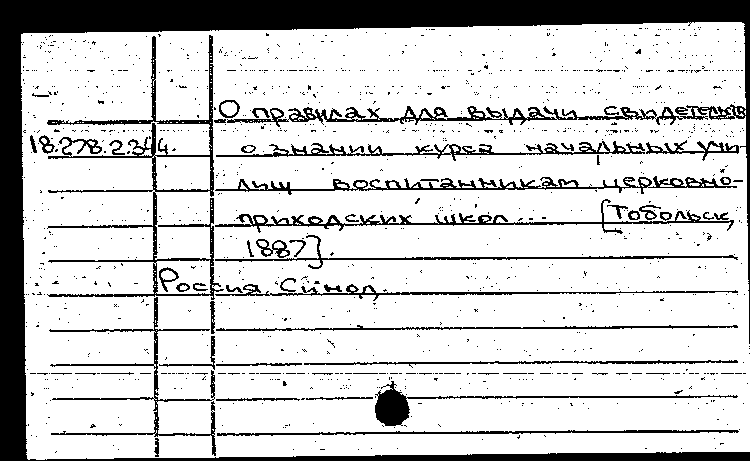 О правилах для выдачи свидетельств
18.278.2.344.
о знании курса начальных учи-
лищ воспитанникам церковно-
приходских школ... [Тобольск,
1887].
Россия. Синод.